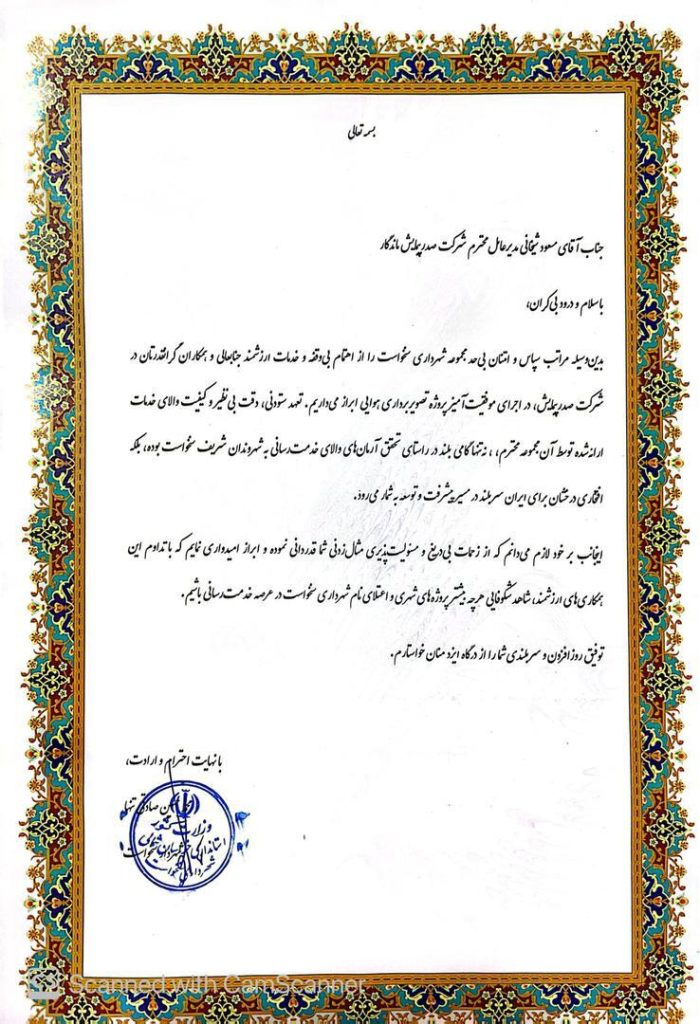 بسمه تعالی
جناب آقای مسعود شیخانی مدیرعامل محترم شرکت صدرپیمایش ماندگار
باسلام و درود بی‌کران،
بدین‌وسیله مراتب سپاس و امتنان بی‌حد مجموعه شهرداری سنخواست را از اهتمام بی‌وقفه و خدمات ارزشمند جنابعالی و همکاران گرانقدرتان در
شرکت صدرپیمایش، در اجرای موفقیت‌آمیز پروژه تصویربرداری هوایی ابراز می‌داریم. تعهد ستودنی، دقت بی‌نظیر و کیفیت والای خدمات
ارائه‌شده توسط آن مجموعه محترم، ، نه‌تنها گامی بلند در راستای تحقق آرمان‌های والای خدمت‌رسانی به شهروندان شریف سنخواست بوده، بلکه
افتخاری درخشان برای ایران سربلند در مسیر پیشرفت و توسعه به شمار می‌رود.
اینجانب بر خود لازم می‌دانم که از زحمات بی‌دریغ و مسئولیت‌پذیری مثال‌زدنی شما قدردانی نموده و ابراز امیدواری نمایم که با تداوم این
همکاری‌های ارزشمند، شاهد شکوفایی هرچه بیشتر پروژه‌های شهری و اعتلای نام شهرداری سنخواست در عرصه خدمت‌رسانی باشیم.
توفیق روزافزون و سربلندی شما را از درگاه ایزد منان خواستارم.
با نهایت احترام و ارادت،
صادقی تنها
وزارت کشور
استانداری خراسان شمالی
شهرداری سنخواست
CS Scanned with CamScanner